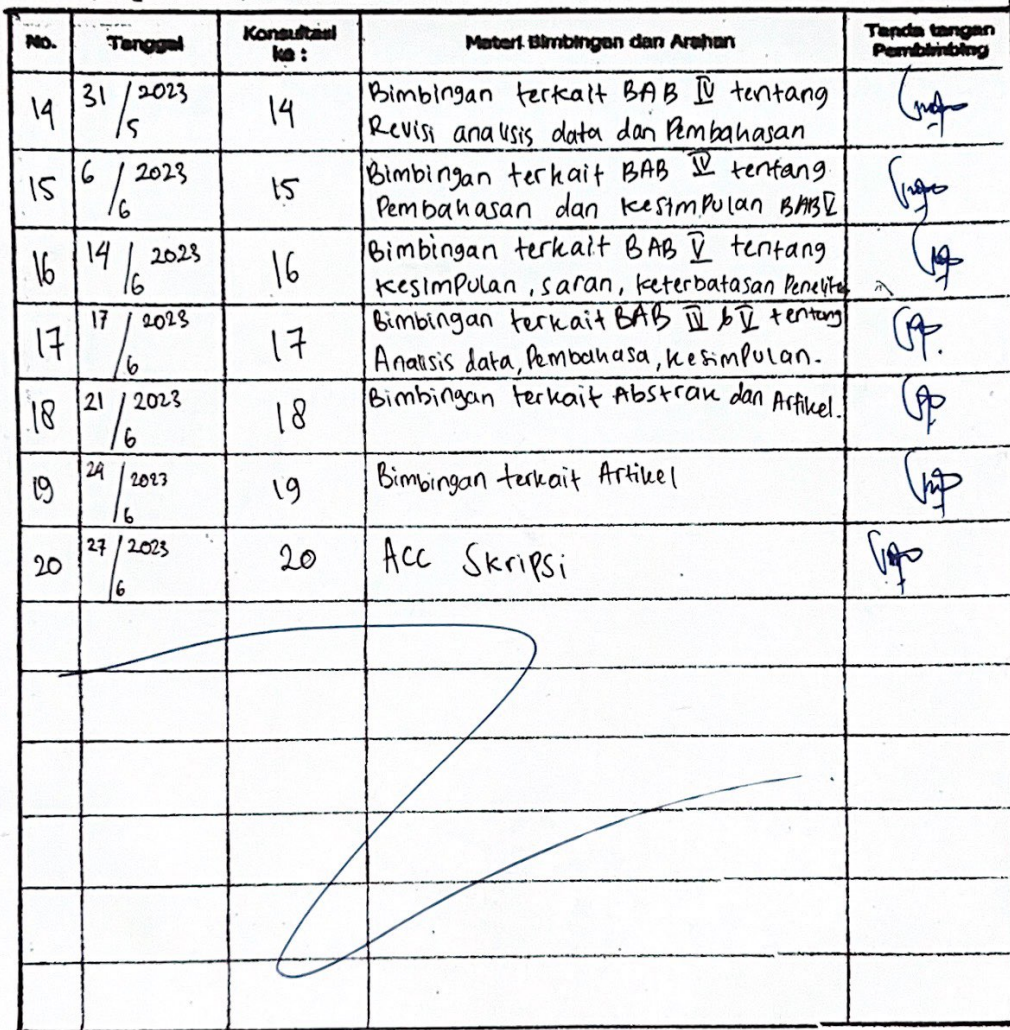 No. Tanggal Konsultasi ke : Materi Bimbingan dan Arahan Tanda tangan Pembimbing
14 31/5 2023 14 Bimbingan terkait BAB IV tentang
Revisi analisis data dan Pembahasan
15 6/6 2023 15 Bimbingan terkait BAB IV tentang
Pembahasan dan kesimpulan BAB V
16 14/6 2023 16 Bimbingan terkait BAB V tentang
kesimpulan, saran, keterbatasan
17 17/6 2023 17 Bimbingan terkait BAB IV & V tentang
Analisis data, Pembahasa, kesimpulan.
18 21/6 2023 18 Bimbingan terkait Abstrak dan Artikel.
19 /6 2023 19 Bimbingan terkait Artikel
20 27/6 2023 20 Acc Skripsi